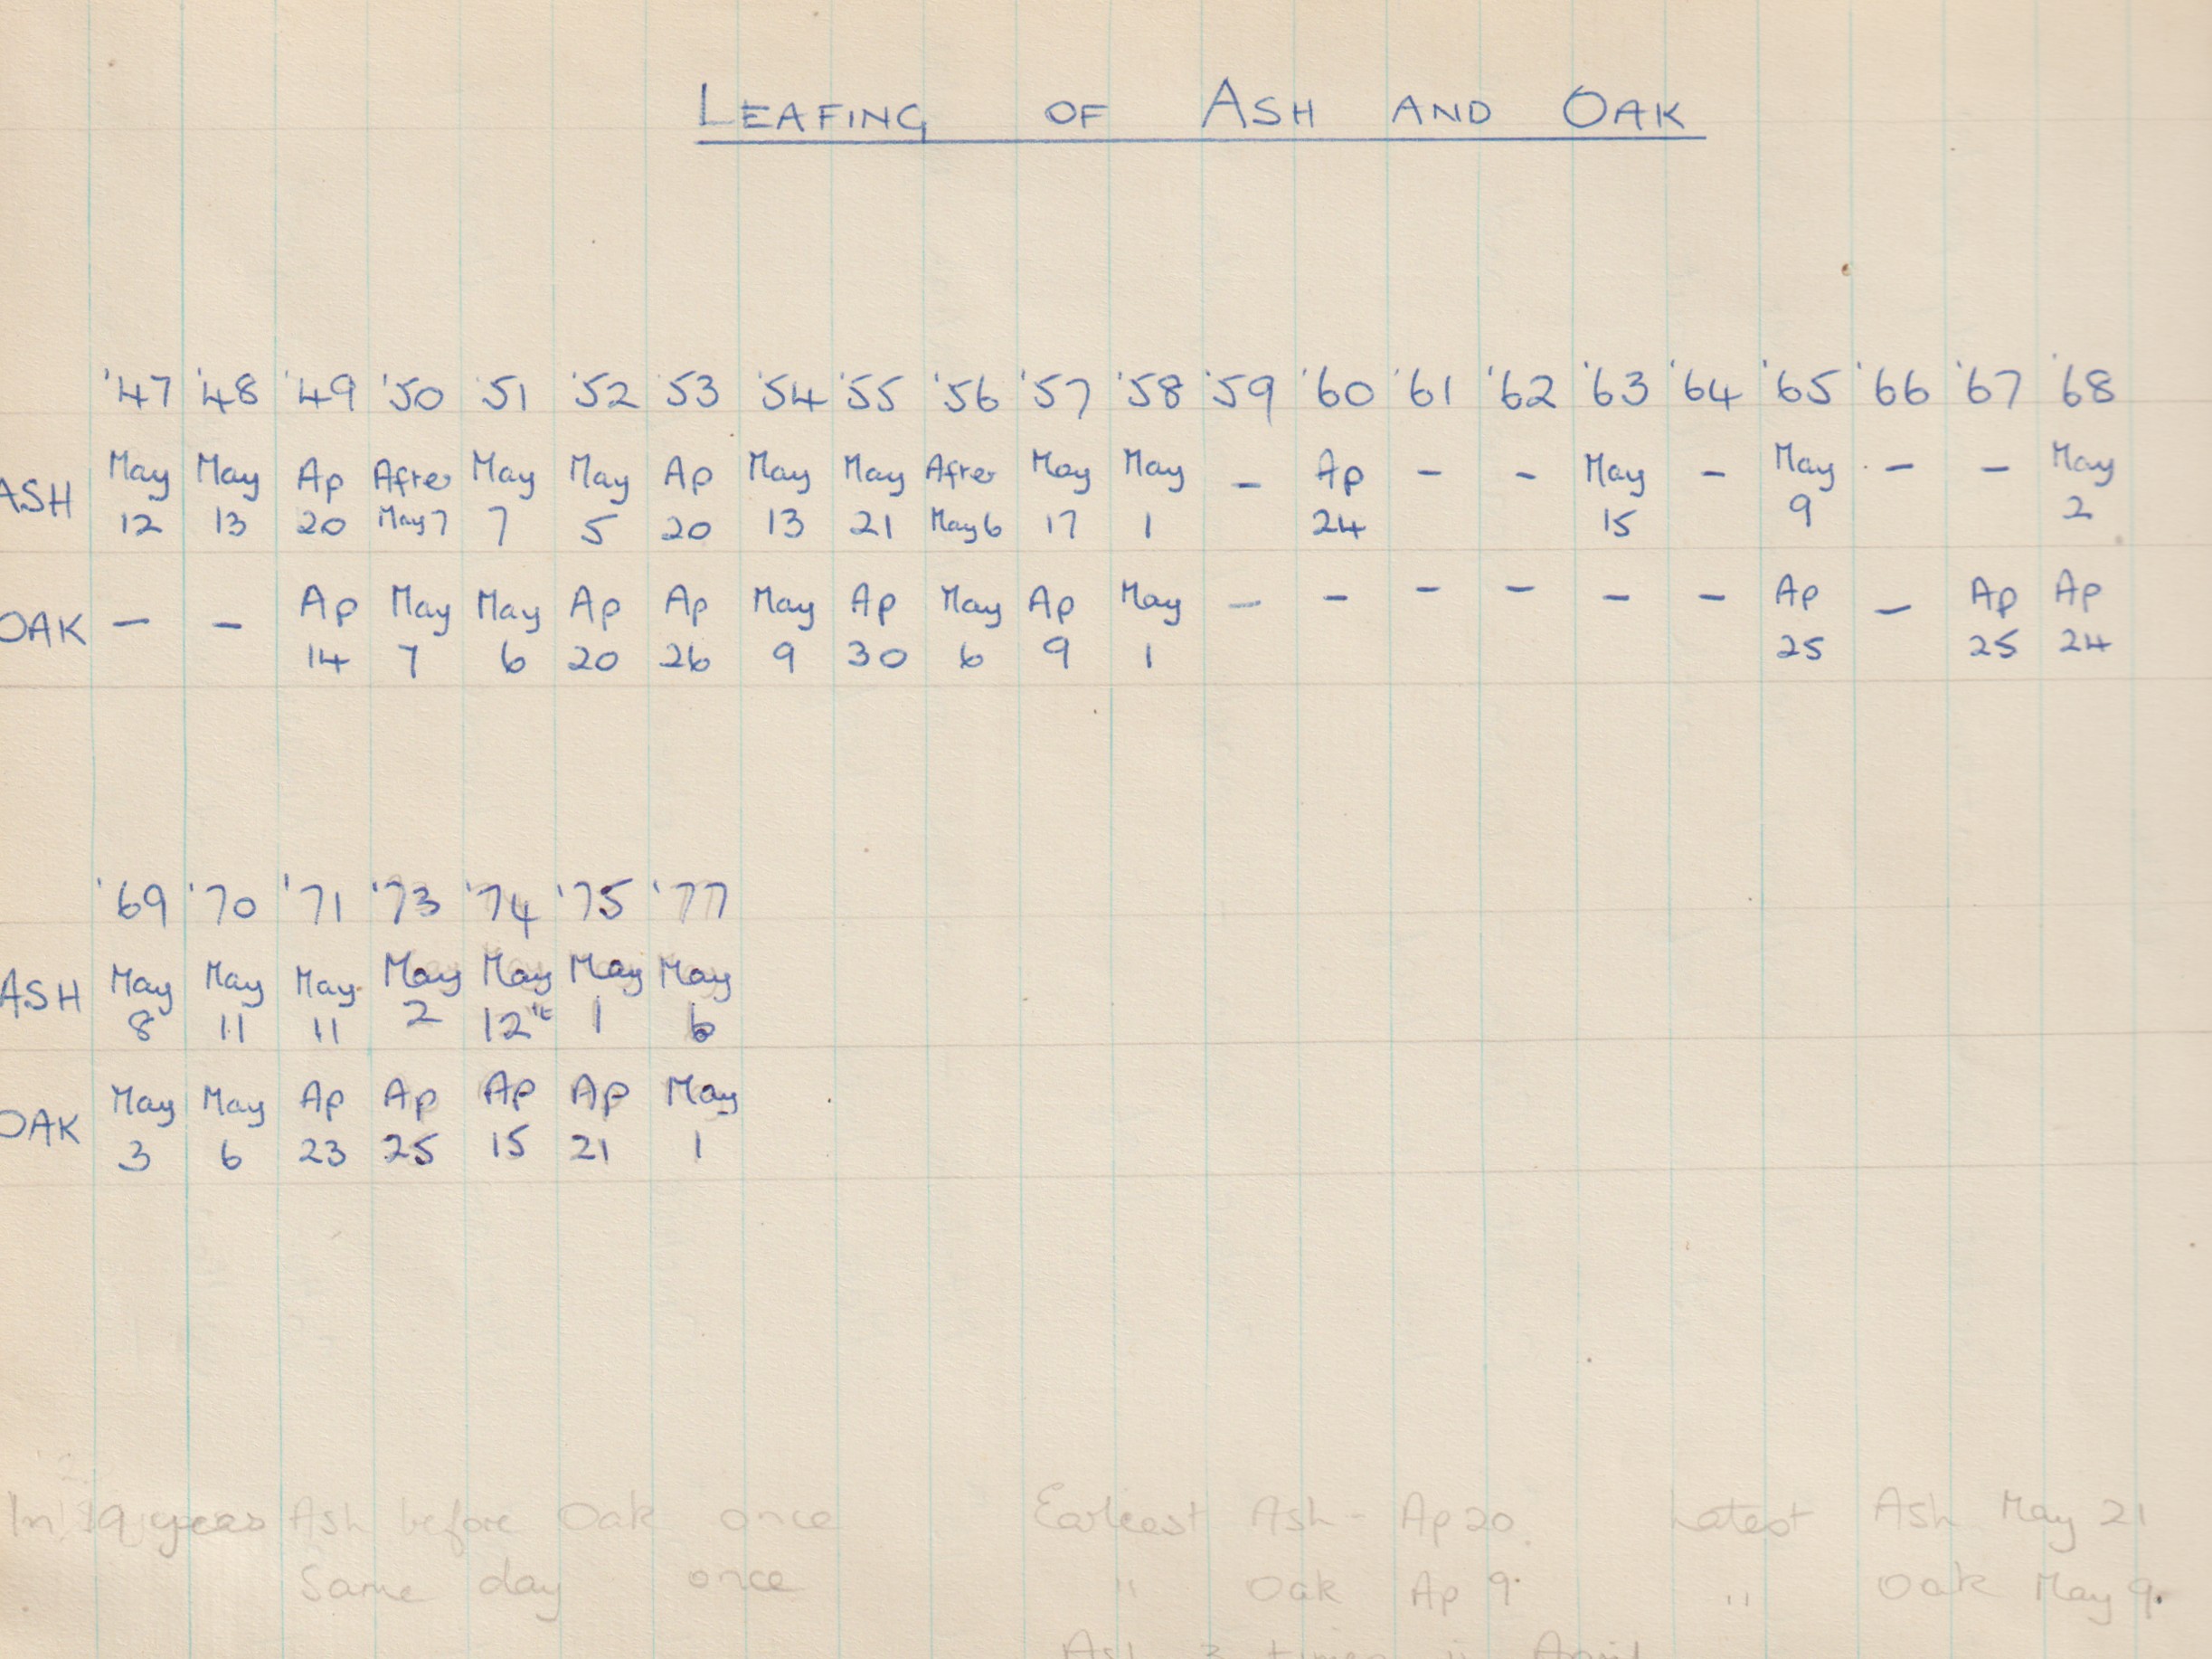 LEAFING OF ASH AND OAK
'47 '48 '49 '50 '51 '52 '53 '54 '55 '56 '57 '58 '59 '60 '61 '62 '63 '64 '65 '66 '67 '68
ASH May May Ap After May May Ap May May After May May - Ap - - May - May - - May
12 13 20 May 7 7 5 20 13 21 May 6 17 1 24 15 9 2
OAK - - Ap May May Ap Ap May Ap May Ap May - - - - - - Ap - Ap Ap
14 7 6 20 26 9 30 6 9 1 25 25 24
'69 '70 '71 '73 '74 '75 '77
ASH May May May May May May May
8 11 11 2 12th 1 6
OAK May May Ap Ap Ap Ap May
3 6 23 25 15 21 1
In 19 years Ash before Oak once Earliest Ash - Ap 20. Latest Ash May 21
Same day once " Oak Ap 9. " Oak May 9.
Ash 3 times in April